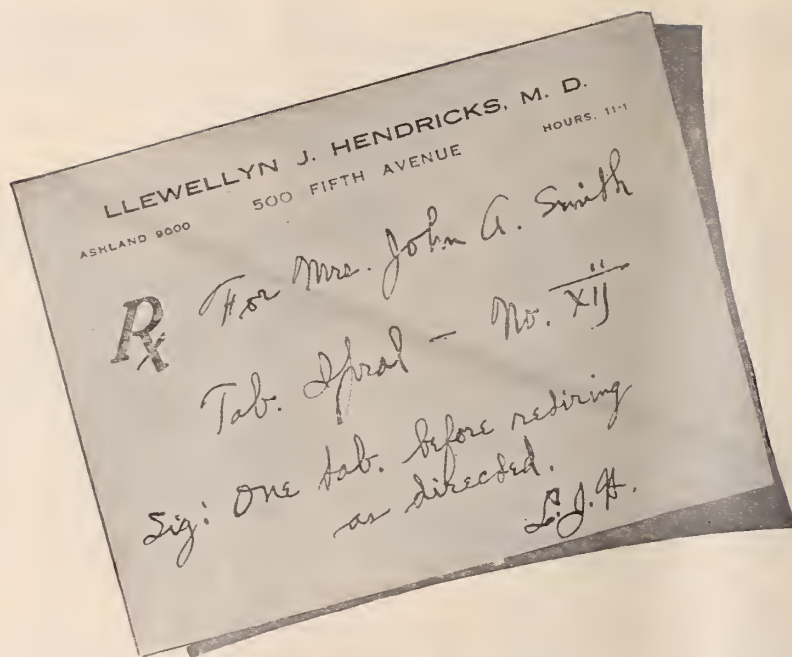 LLEWELLYN J. HENDRICKS, M. D.
500 FIFTH AVENUE
ASHLAND 9000 HOURS, 11-1
Rx For Mrs. John A. Smith
Tab. Ipral — No. XIJ
Sig: One tab. before retiring
as directed.
L.J.H.